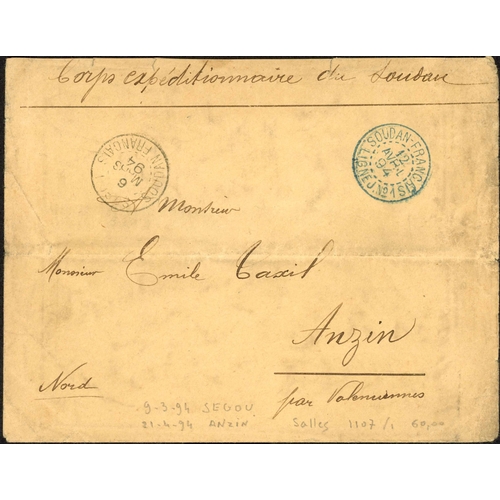 Corps expéditionnaire du Soudan
SOUDAN-FRANÇAIS
MARS
94
SOUDAN-FRANÇAIS
12
AVRIL
94
LIGNE J Nº1
Monsieur
Monsieur Emile Taxil
Anzin
Nord
par Valenciennes
9-3-94 SEGOU
21-4-94 ANZIN
Salles 1107/1 60,00